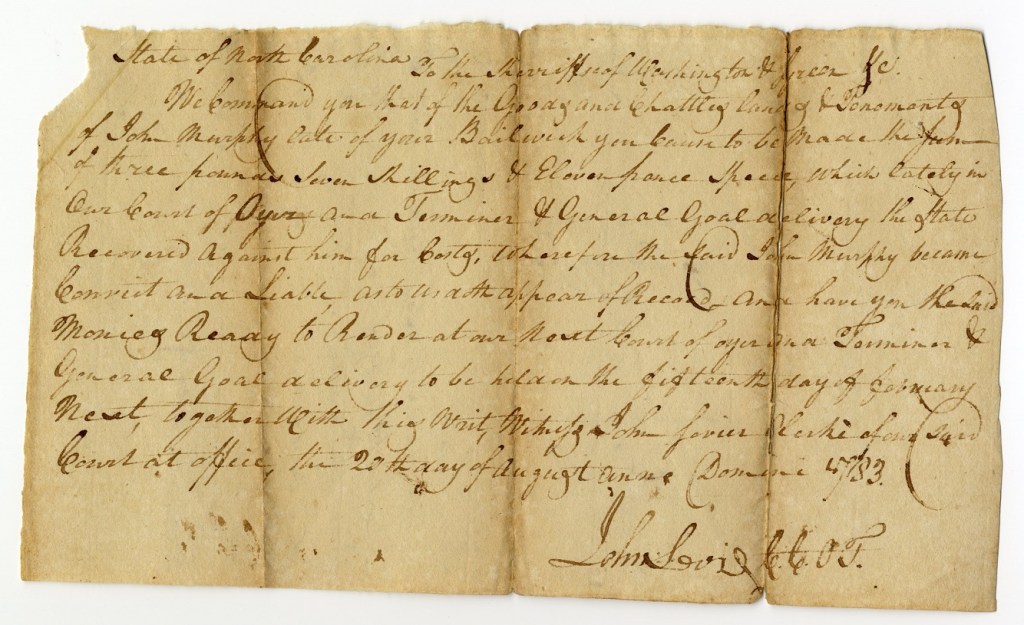 State of North Carolina
To the Sherriffs of Washington & Green &c.
We Command you that of the Goods and Chattles lands & Tenoments
of John Murphy late of your Bailwick you Cause to be Made the sum
of three pounds Seven Shillings & Eleven pence Specie, which lately in
Our Court of Oyer and Terminer & General Goal delivery the State
Recovered Against him for Costs, Wherefore the said John Murphy became
Convict and Liable as to us doth appear of Record and have you the said
Monies Ready to Render at our Next Court of oyer and Terminer &
General Goal delivery to be held on the fifteenth day of february
Next, together With this Writ, Witness John Sevier Clerke of our said
Court at office, the 20th day of August anno Domini 1783.
John Sevier C.C.O.T.